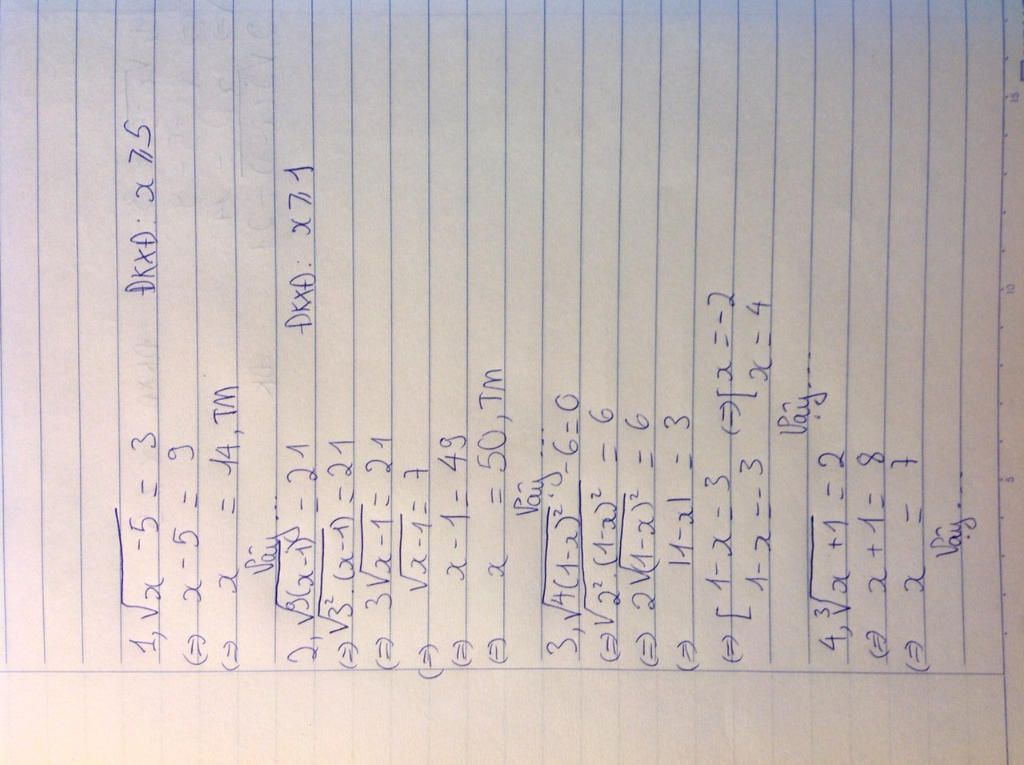 1, √(x - 5) = 3 ĐKXĐ: x ≥ 5
(=) x - 5 = 9
(=) x = 14, TM
Vậy...
2, √(9(x-1)) = 21 ĐKXĐ: x ≥ 1
(=) √(3².(x-1)) = 21
(=) 3√(x-1) = 21
(=) √(x-1) = 7
(=) x - 1 = 49
(=) x = 50, TM
Vậy...
3, √(4(1-x)²) - 6 = 0
(=) √(2².(1-x)²) = 6
(=) 2√((1-x)²) = 6
(=) |1-x| = 3
(=) [ 1 - x = 3 (=) [ x = -2
1 - x = -3 x = 4
Vậy...
4, ³√(x + 1) = 2
(=) x + 1 = 8
(=) x = 7
Vậy...
5
10
15